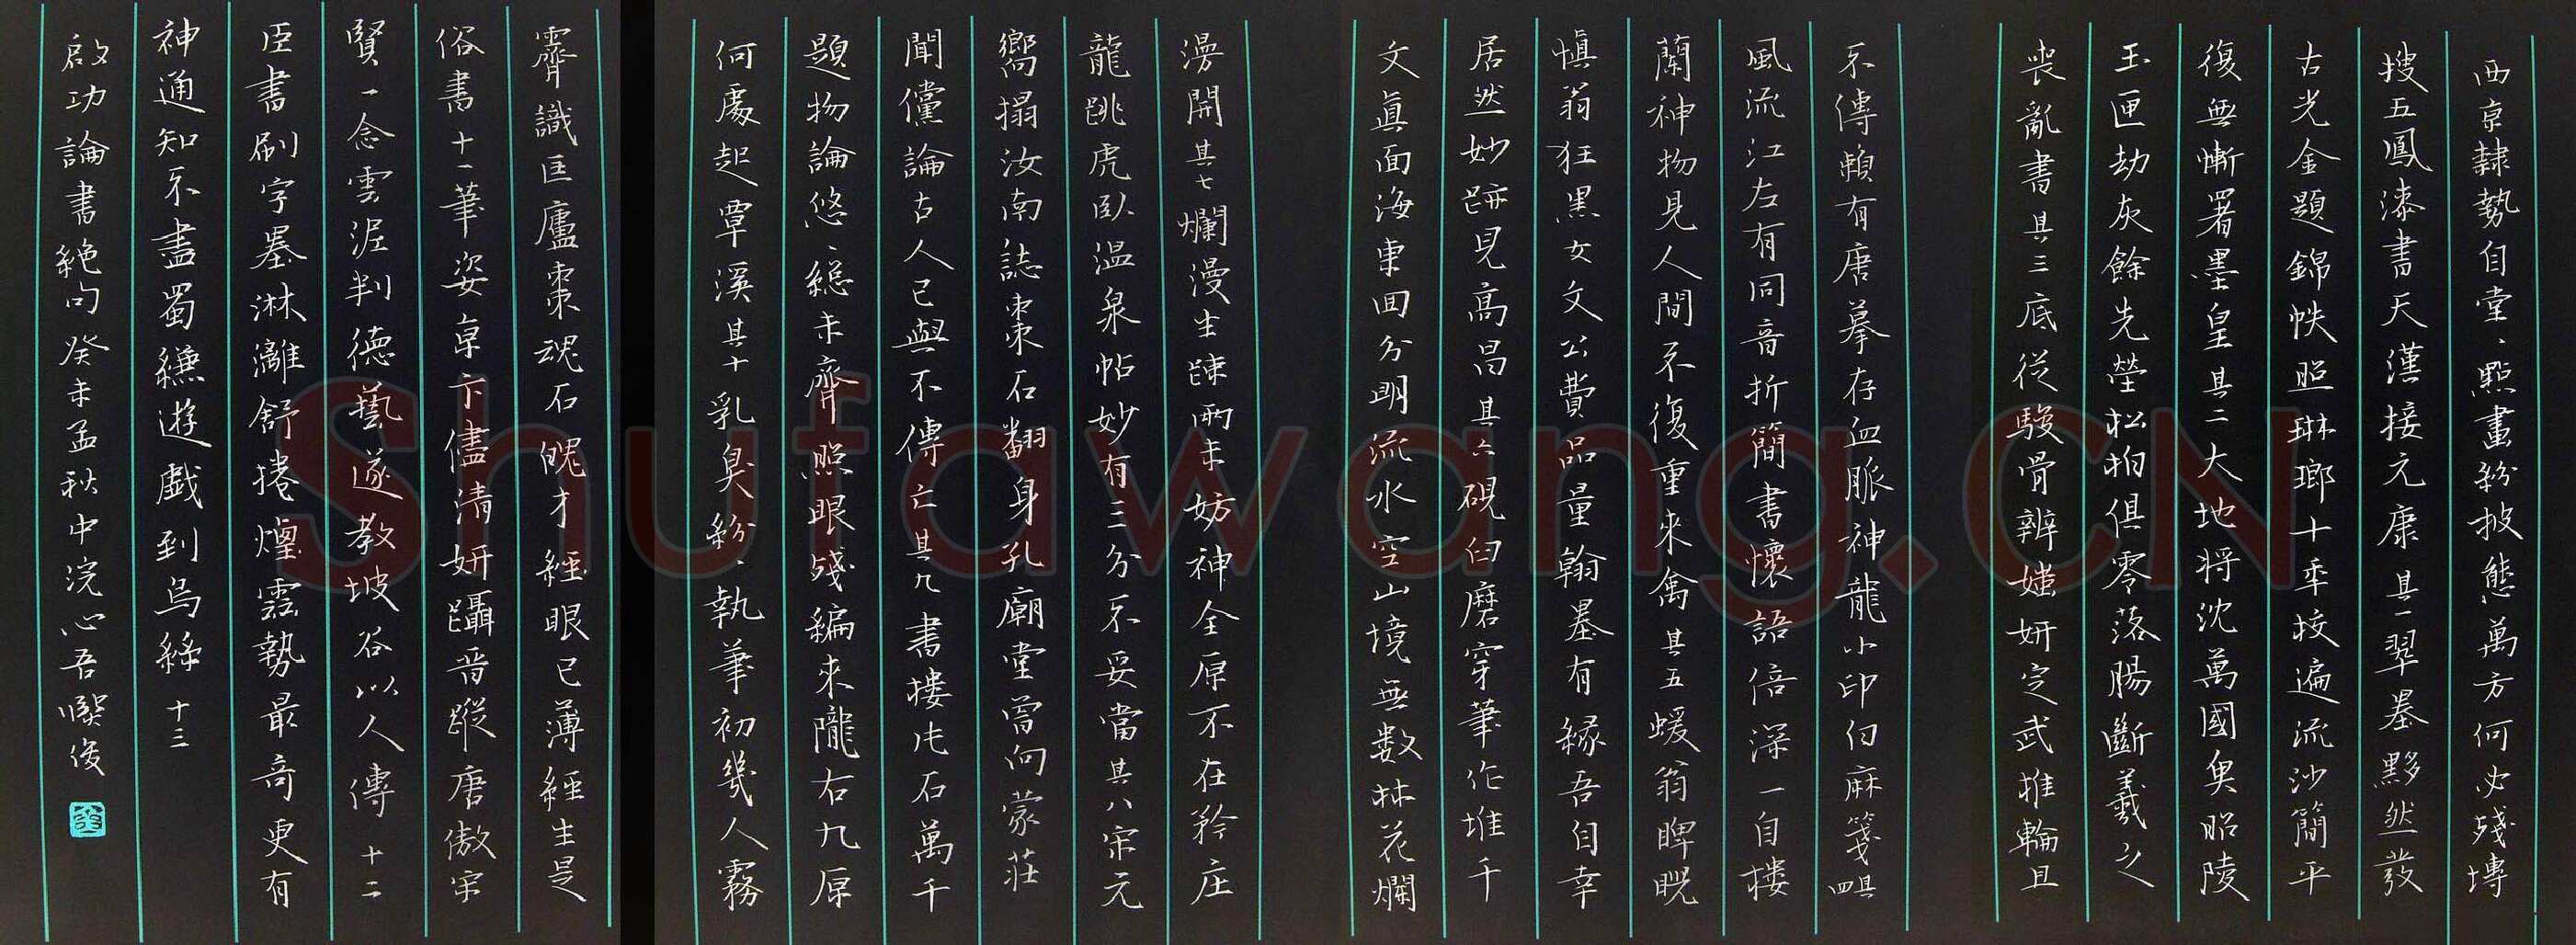 西京隸勢自堂、點畫紛披態萬方何必殘塼
搜五鳳漆書天漢接元康其一翠墨黟然發
古光金題錦帙照琳瑯十年校遍流沙簡平
復無慚署墨皇其二大地將沈萬國魚昭陵
玉匣劫灰餘先塋松柏俱零落腸斷羲之
喪亂書其三底從駿骨辨媸妍定武推輪且
不傳賴有唐摹存血脈神龍小印白麻箋其四
風流江左有同音折簡書懷語倍深一自樓
蘭神物見人間不復重來禽其五蝯翁睥睨
慎翁狂黑女文公費品量翰墨有緣吾自幸
居然妙跡見高昌其六硯臼磨穿筆作堆千
文真面海東回分明流水空山境無數林花爛
漫開其七爛漫生疎兩未妨神全原不在矜庄
龍跳虎臥溫泉帖妙有三分不妥當其八宋元
嚮搨汝南誌棗石翻身孔廟堂曾向蒙莊
聞儻論古人已與不傳亡其九書樓片石萬千
題物論悠、總未齊照眼殘編來隴右九原
何處起覃溪其十乳臭紛、執筆初幾人霧
霽識匡廬棗魂石魄才經眼已薄經生是
俗書十一筆姿京卞儘清妍躡晉蹤唐傲宋
賢一念雲泥判德藝遂教坡谷以人傳十二
臣書刷字墨淋灕舒捲煙雲勢最奇更有
神通知不盡蜀縑遊戲到烏絲十三
啟功論書絕句癸未孟秋中浣心吾暌俊
Shufawang.CN